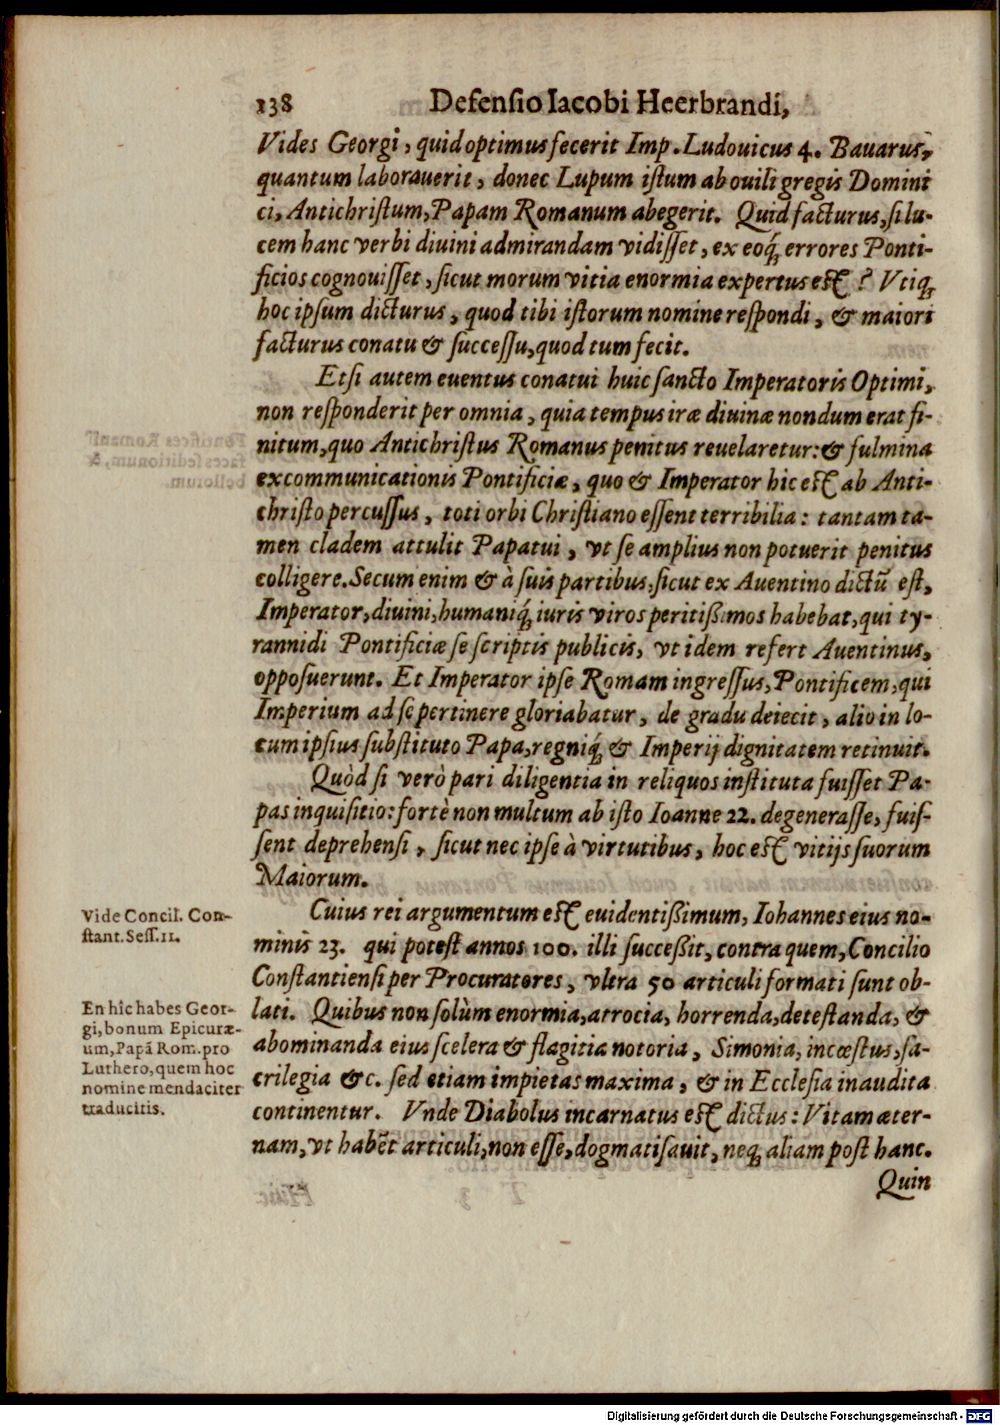 138 Defensio Iacobi Heerbrandi,
Vides Georgi, quid optimus fecerit Imp. Ludouicus 4. Bauarus,
quantum laborauerit, donec Lupum iſtum ab ouili gregis Domini
ci, Antichriſtum, Papam Romanum abegerit. Quid facturus, ſi lu-
cem hanc verbi diuini admirandam vidiſſet, ex eoq́; errores Ponti-
ficios cognouiſſet, ſicut morum vitia enormia expertus eſt? Vtiq;
hoc ipſum dicturus, quod tibi iſtorum nomine reſpondi, & maiori
facturus conatu & ſucceſſu, quod tum fecit.
Etſi autem euentus conatui huic ſancto Imperatoris Optimi,
non reſponderit per omnia, quia tempus iræ diuinæ nondum erat fi-
nitum, quo Antichriſtus Romanus penitus reuelaretur: & fulmina
excommunicationis Pontificiæ, quo & Imperator hic eſt ab Anti-
chriſto percuſſus, toti orbi Chriſtiano eſſent terribilia: tantam ta-
men cladem attulit Papatui, vt ſe amplius non potuerit penitus
colligere. Secum enim & à ſuis partibus, ſicut ex Auentino dictū eſt,
Imperator, diuini, humaniq́; iuris viros peritißimos habebat, qui ty-
rannidi Pontificiæ ſe ſcriptis publicis, vt idem refert Auentinus,
oppoſuerunt. Et Imperator ipſe Romam ingreſſus, Pontificem, qui
Imperium ad ſe pertinere gloriabatur, de gradu deiecit, alio in lo-
cum ipſius ſubſtituto Papa, regniq́; & Imperij dignitatem retinuit.
Quòd ſi verò pari diligentia in reliquos inſtituta fuiſſet Pa-
pas inquiſitio: fortè non multum ab iſto Ioanne 22. degeneraſſe, fuiſ-
ſent deprehenſi, ſicut nec ipſe à virtutibus, hoc eſt vitijs ſuorum
Maiorum.
Vide Concil. Con-
ſtant. Seſſ. 11.
Cuius rei argumentum eſt euidentißimum, Iohannes eius no-
minis 23. qui poteſt annos 100. illi ſucceßit, contra quem, Concilio
Conſtantienſi per Procuratores, vltra 50 articuli formati ſunt ob-
lati. Quibus non ſolùm enormia, atrocia, horrenda, deteſtanda, &
abominanda eius ſcelera & flagitia notoria, Simonia, incæſtus, ſa-
crilegia &c. ſed etiam impietas maxima, & in Eccleſia inaudita
continentur. Vnde Diabolus incarnatus eſt dictus: Vitam æter-
nam, vt habēt articuli, non eſſe, dogmatiſauit, neq; aliam poſt hanc.
En hîc habes Geor-
gi, bonum Epicuræ-
um, Papā Rom. pro
Luthero, quem hoc
nomine mendaciter
traducitis.
Quin
Digitalisierung gefördert durch die Deutsche Forschungsgemeinschaft - DFG